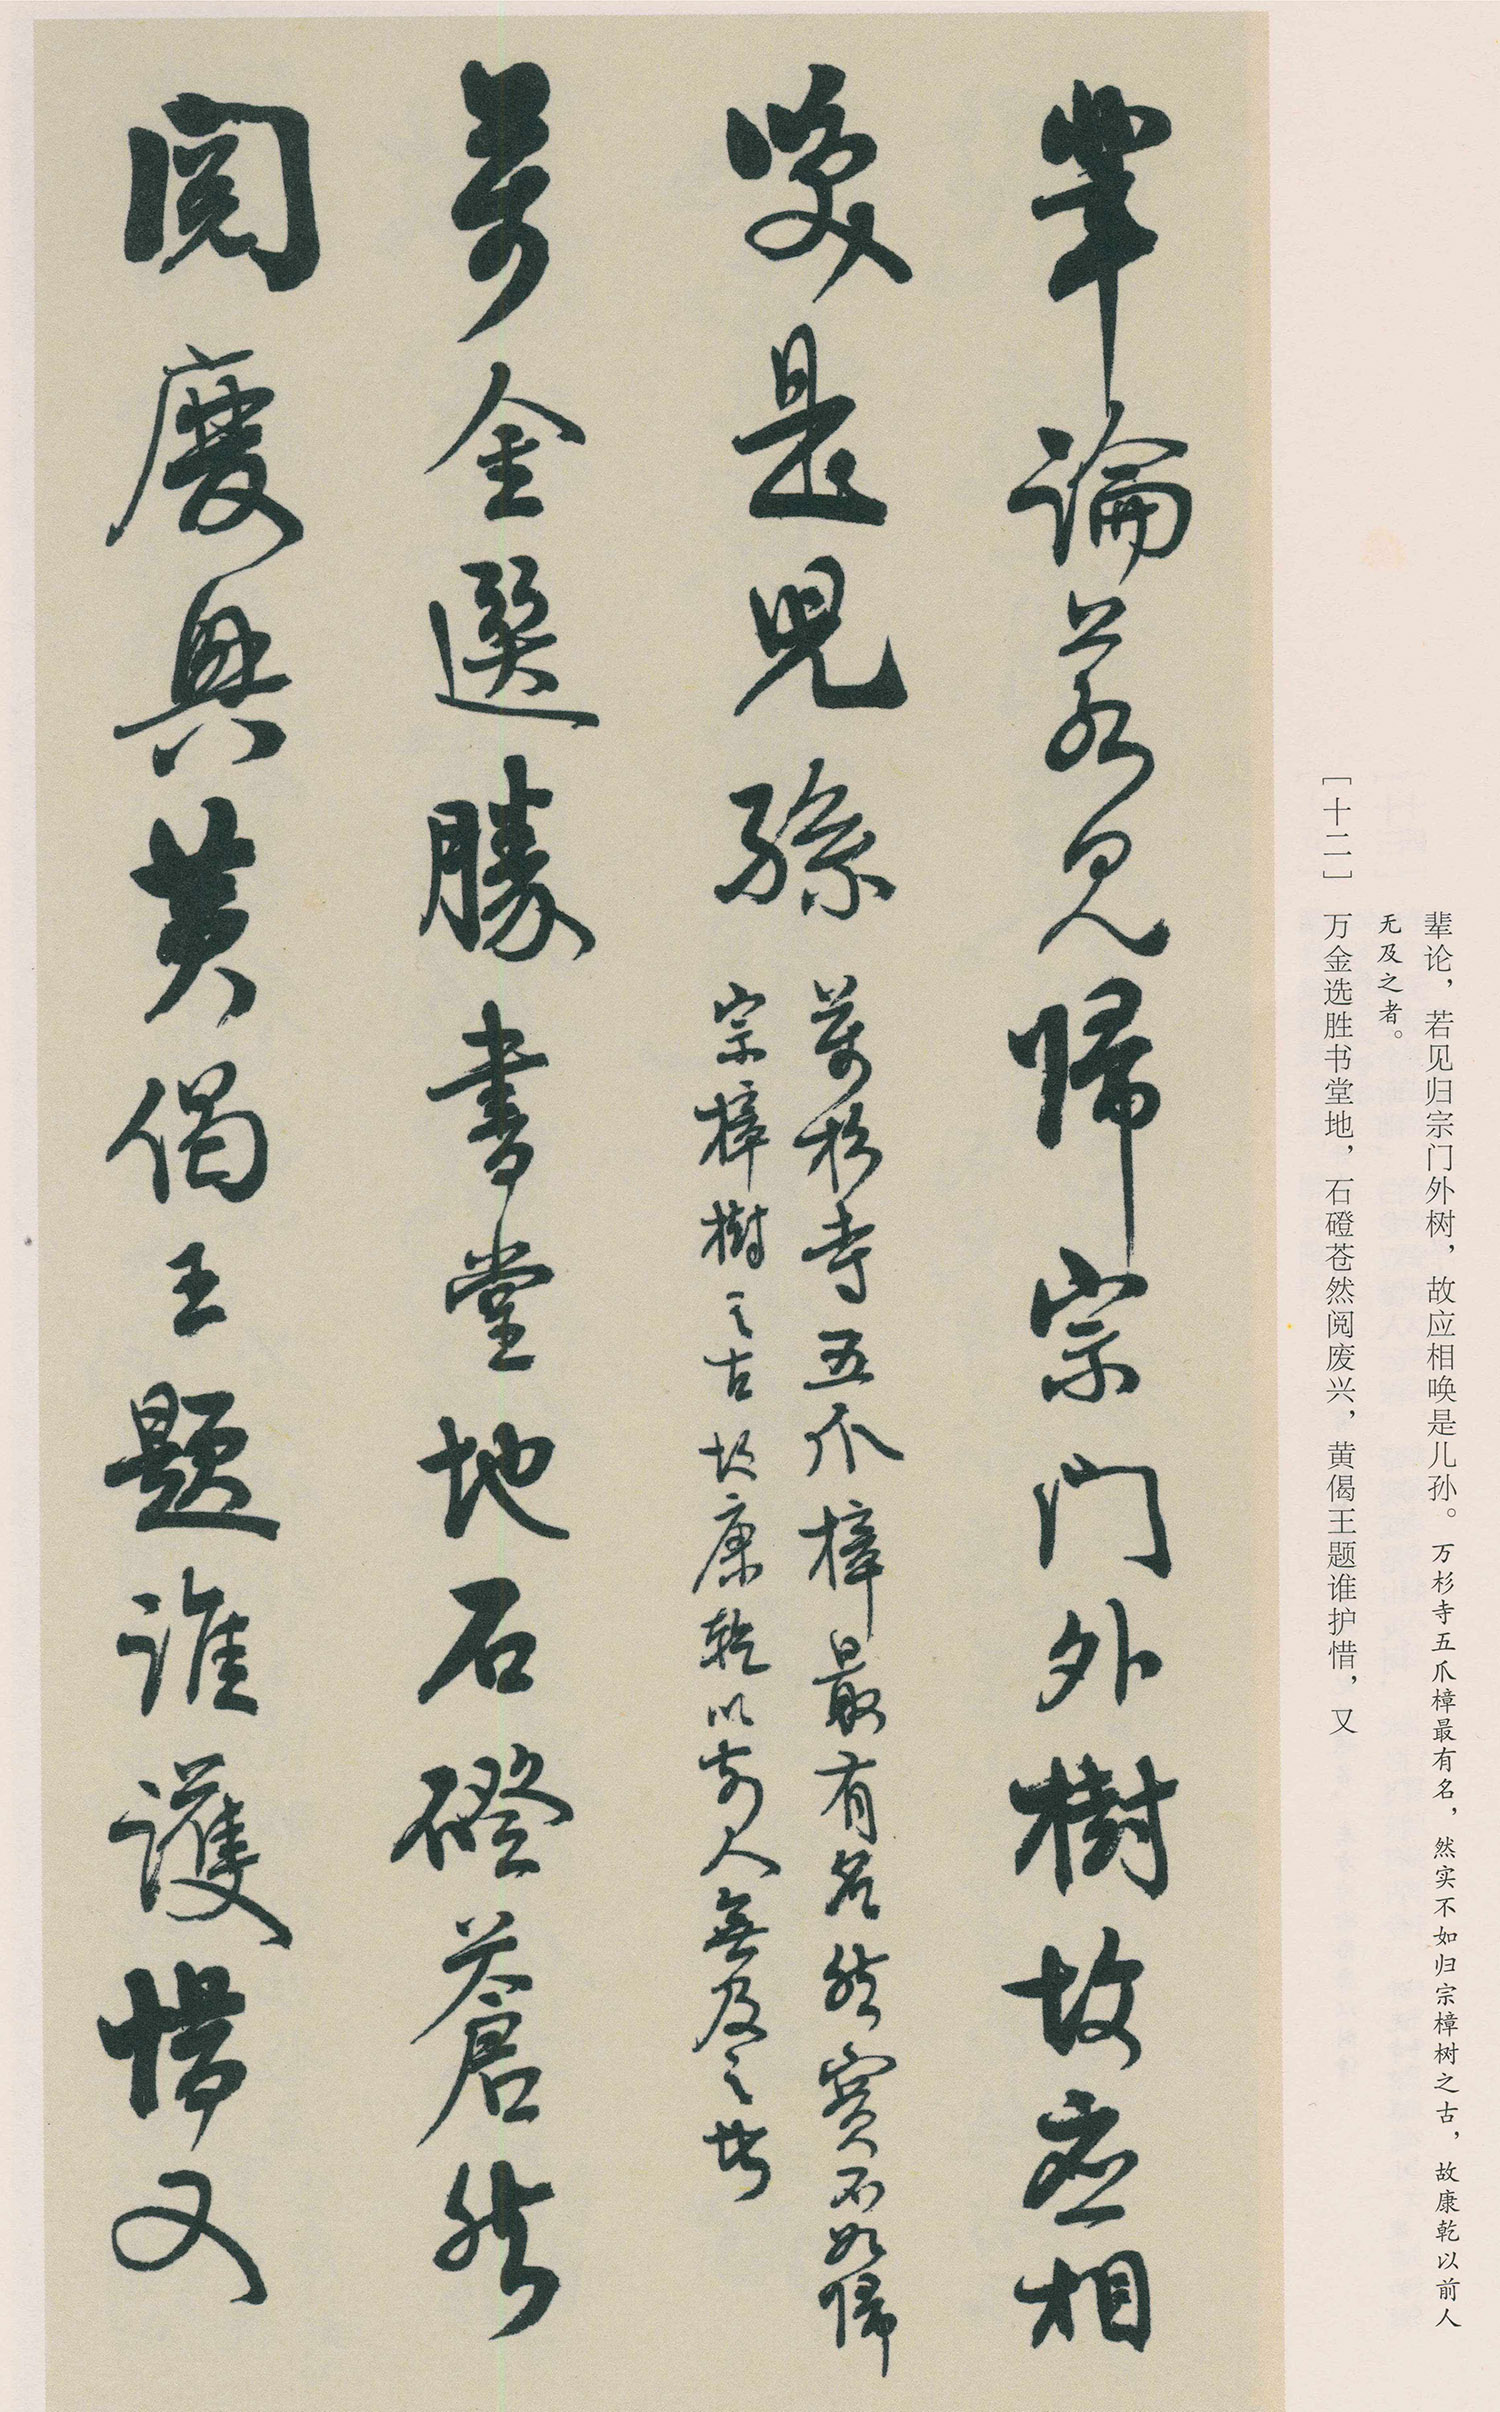 辈论，若见归宗门外树，故应相唤是儿孙。万杉寺五爪樟最有名，然实不如归宗樟树之古，故康乾以前人
无及之者。
［十二］　万金选胜书堂地，石磴苍然阅废兴，黄偈王题谁护惜，又
輩論若見歸宗門外樹故應相
喚是兒孫
萬杉寺五爪樟最有名然實不如歸
宗樟樹之古故康乾以前人無及之者
萬金選勝書堂地石磴蒼然
閱廢興黄偈王題誰護惜又